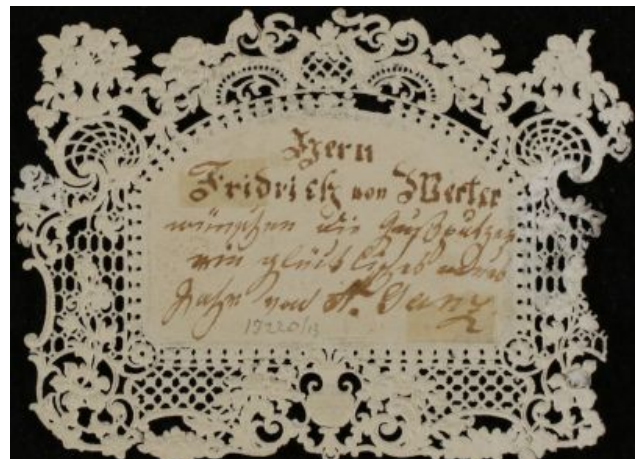 Hern
Fridrich von Werter
wünschen die Gußputzer
ein glückliches neues
Jahr von
17220/13